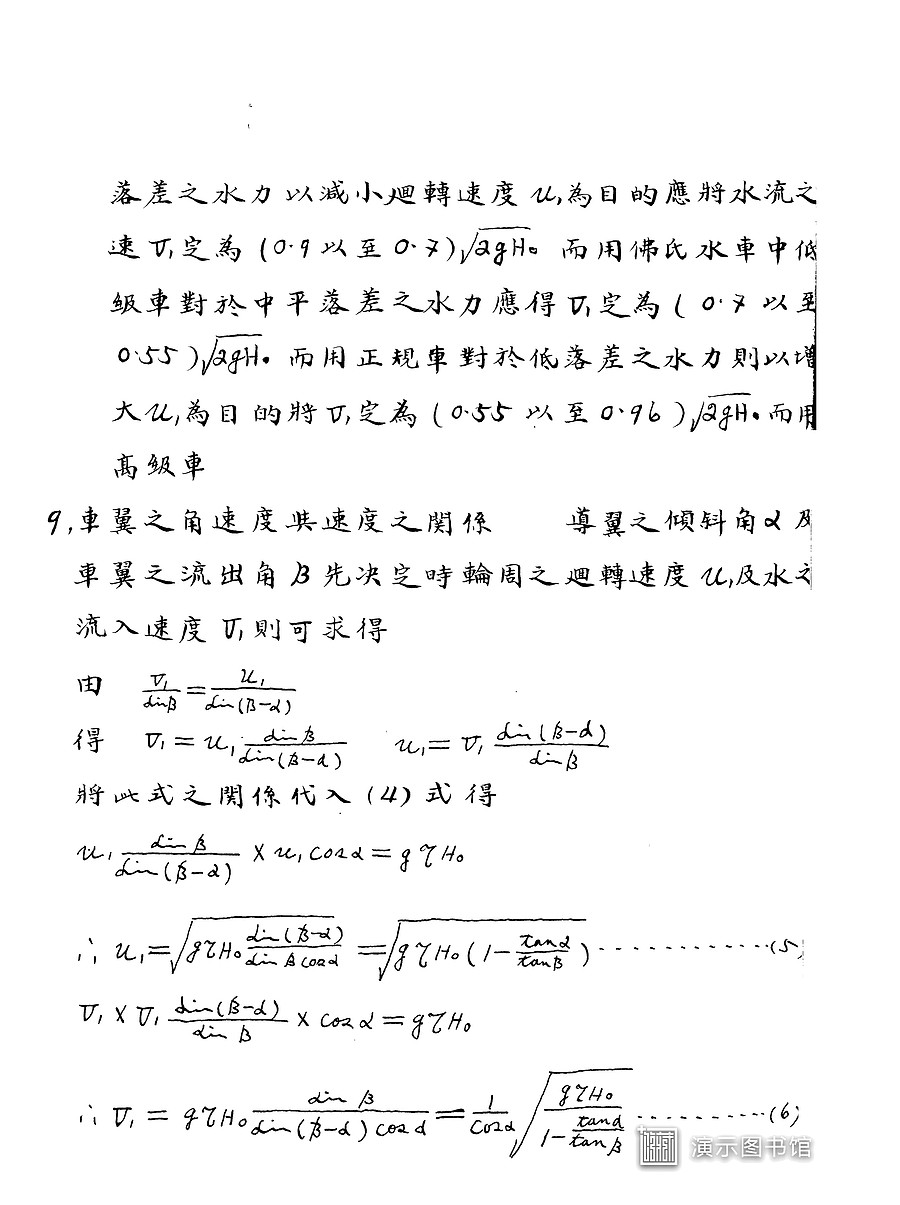 落差之水力以減小廻轉速度 u₁為目的應將水流之
速 v₁定為 (0·9 以至 0·7)√2gH。而用佛氏水車中低
級車對於中平落差之水力應得 v₁定為 ( 0·7 以至
0·55 )√2gH。而用正規車對於低落差之水力則以增
大 u₁為目的將 v₁定為 (0·55 以至 0·96 )√2gH。而用
高級車
9,車翼之角速度與速度之関係 導翼之傾斜角α及
車翼之流出角 β先決定時輪周之廻轉速度 u₁及水之
流入速度 v₁則可求得
由 v₁/sinβ = u₁/sin(β-α)
得 v₁ = u₁ sinβ/sin(β-α) u₁ = v₁ sin(β-α)/sinβ
將此式之関係代入 (4) 式得
u₁ sinβ/sin(β-α) × u₁ cosα = gτH₀
∴ u₁ = √(gτH₀ sin(β-α)/sinβcosα) = √(gτH₀(1-tanα/tanβ)) ............(5)
v₁ × v₁ sin(β-α)/sinβ × cosα = gτH₀
∴ v₁ = gτH₀ sinβ/sin(β-α)cosα = 1/cosα √(gτH₀/(1-tanα/tanβ)) ............(6)
演示图书馆